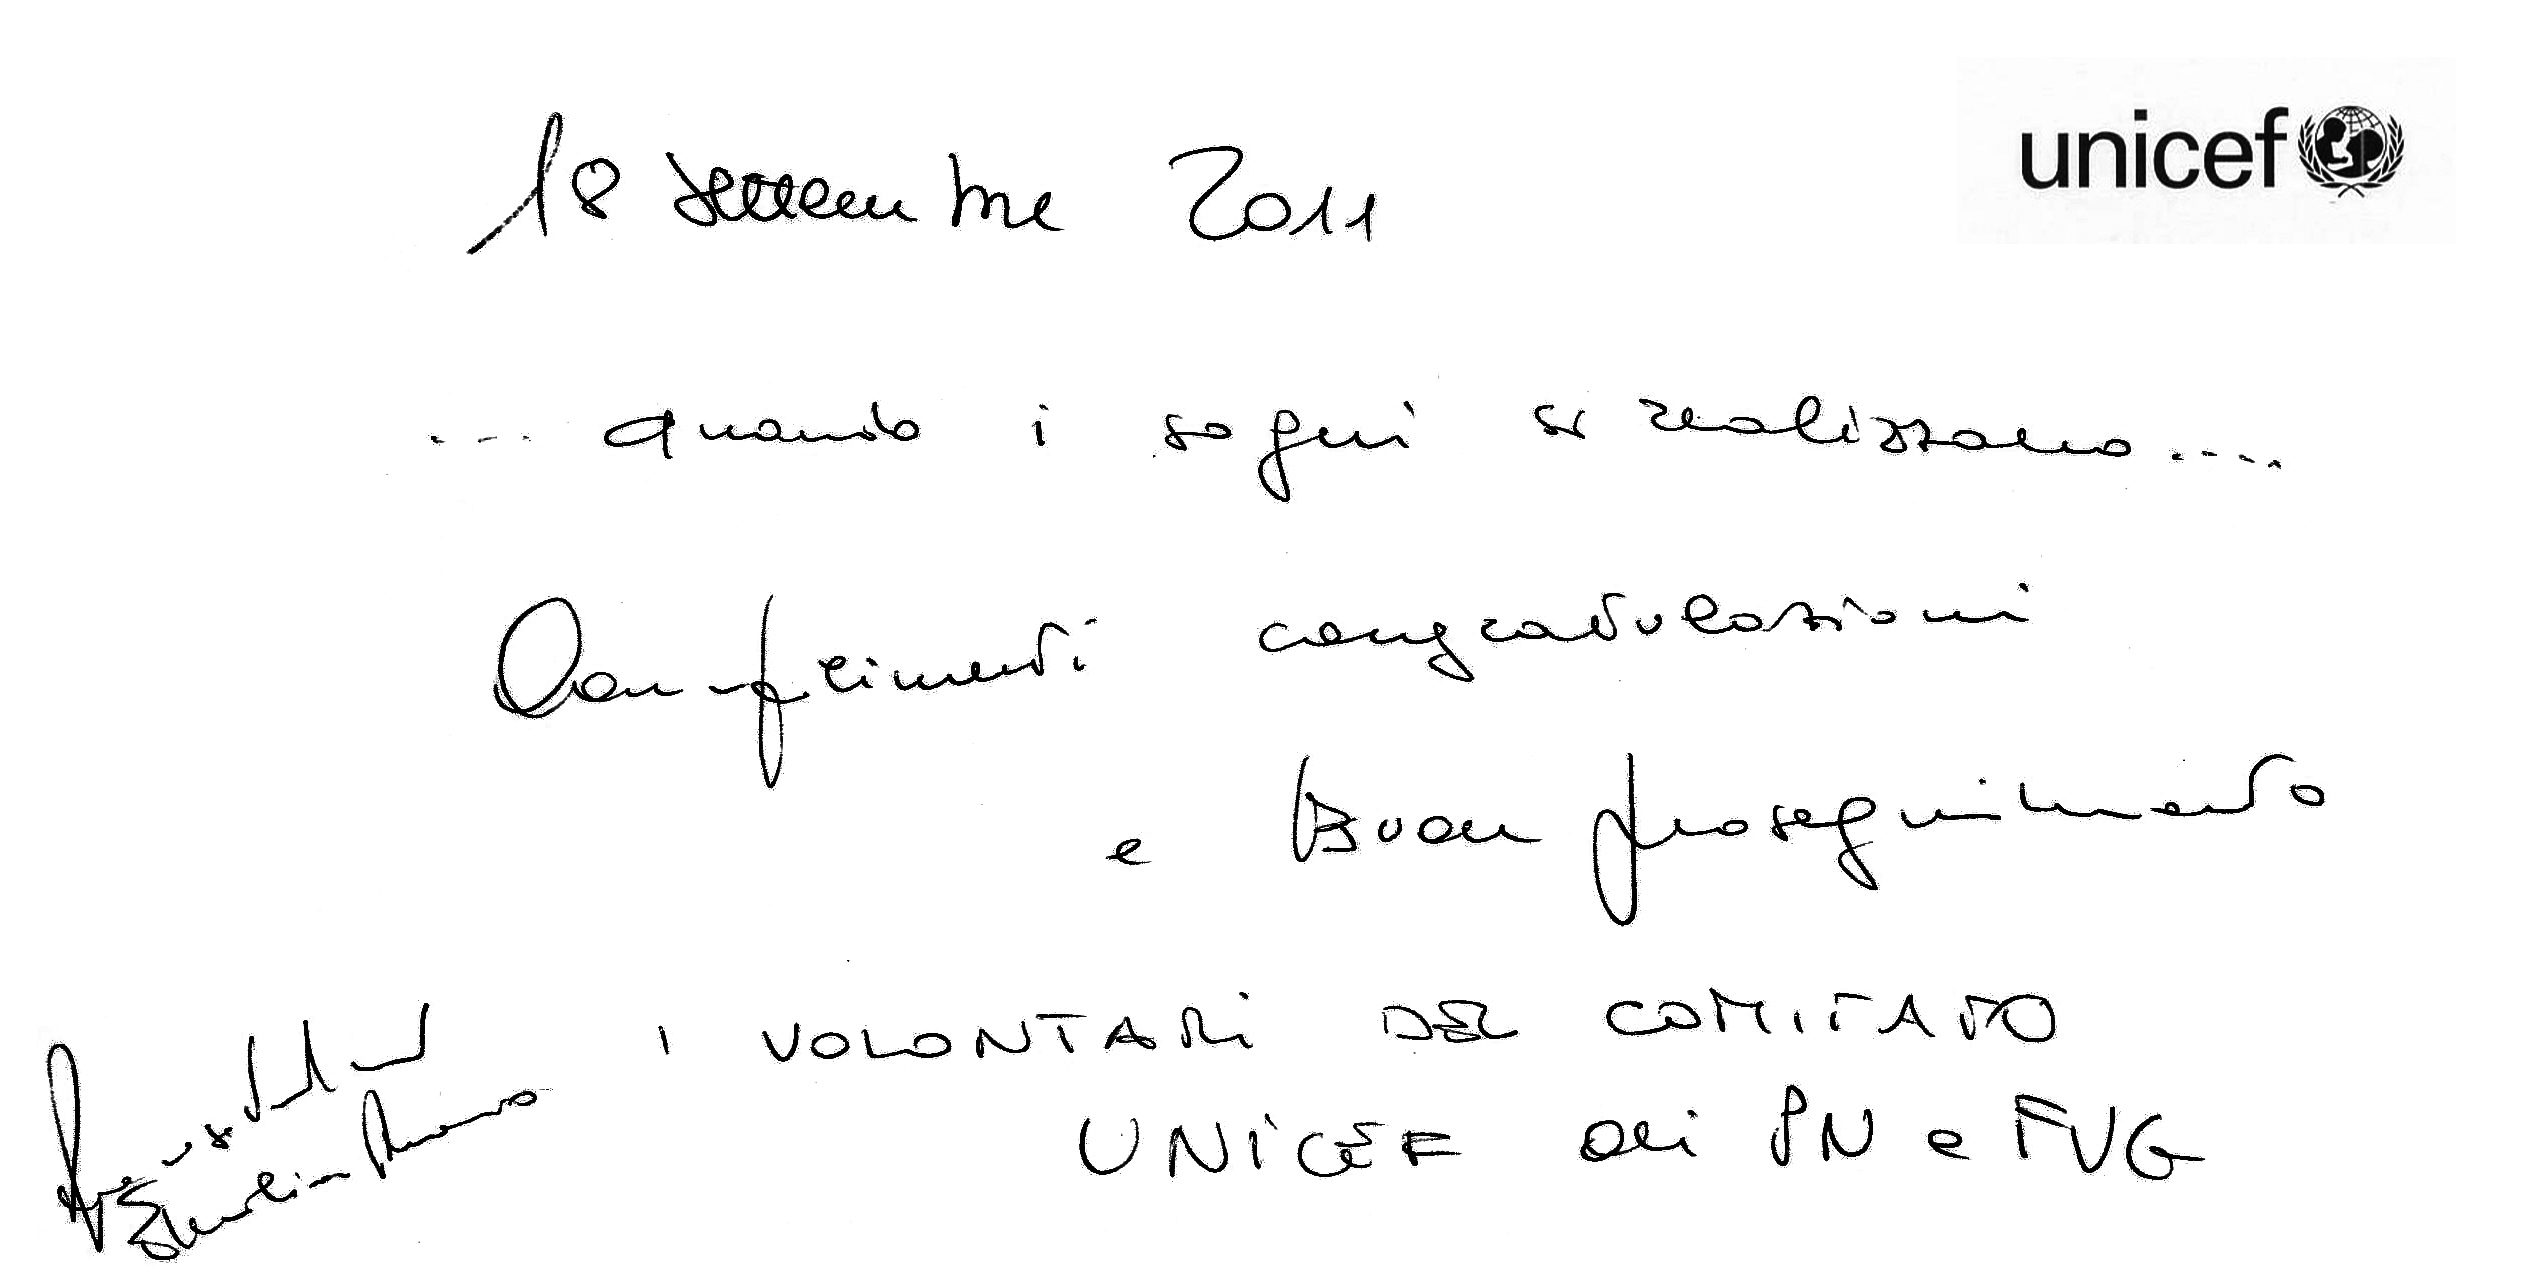 unicef
18 settembre 2011
... quando i sogni si realizzano ....
Complimenti congratulazioni
e Buon proseguimento
I VOLONTARI DEL COMITATO
UNICEF di PN e FVG